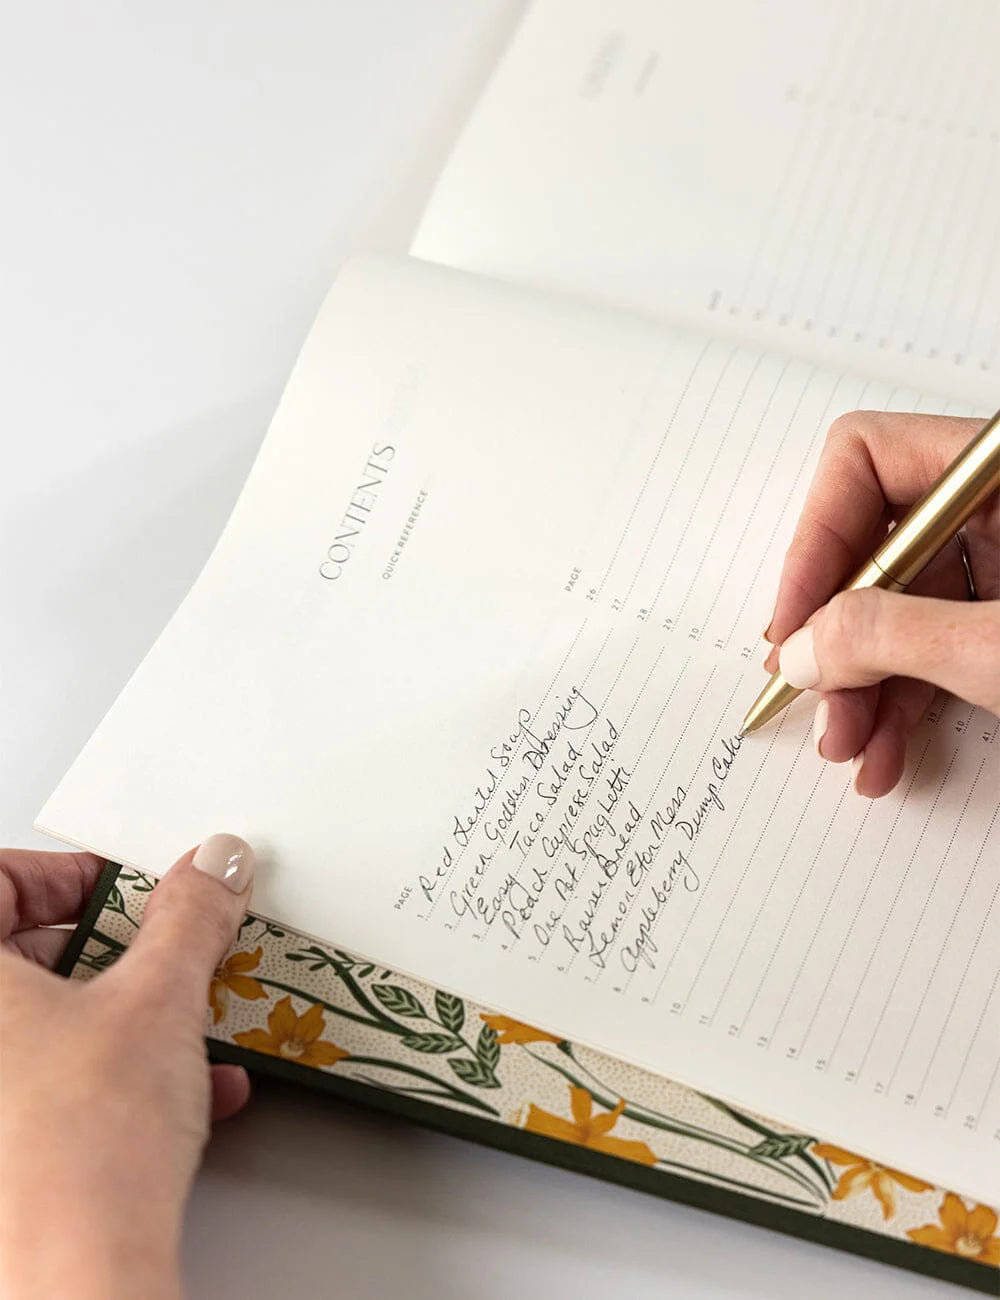 CONTENTS
QUICK REFERENCE
PAGE
1 Red Lentil Soup
2 Green Goddess Dressing
3 Easy Taco Salad
4 Peach Caprese Salad
5 One Pot Spaghetti
6 Raisen Bread
7 Lemon Eton Mess
8 Appleberry Dump Cake
9
10
11
12
13
14
15
16
17
18
19
20
PAGE
26
27
28
29
30
31
32
39
40
41